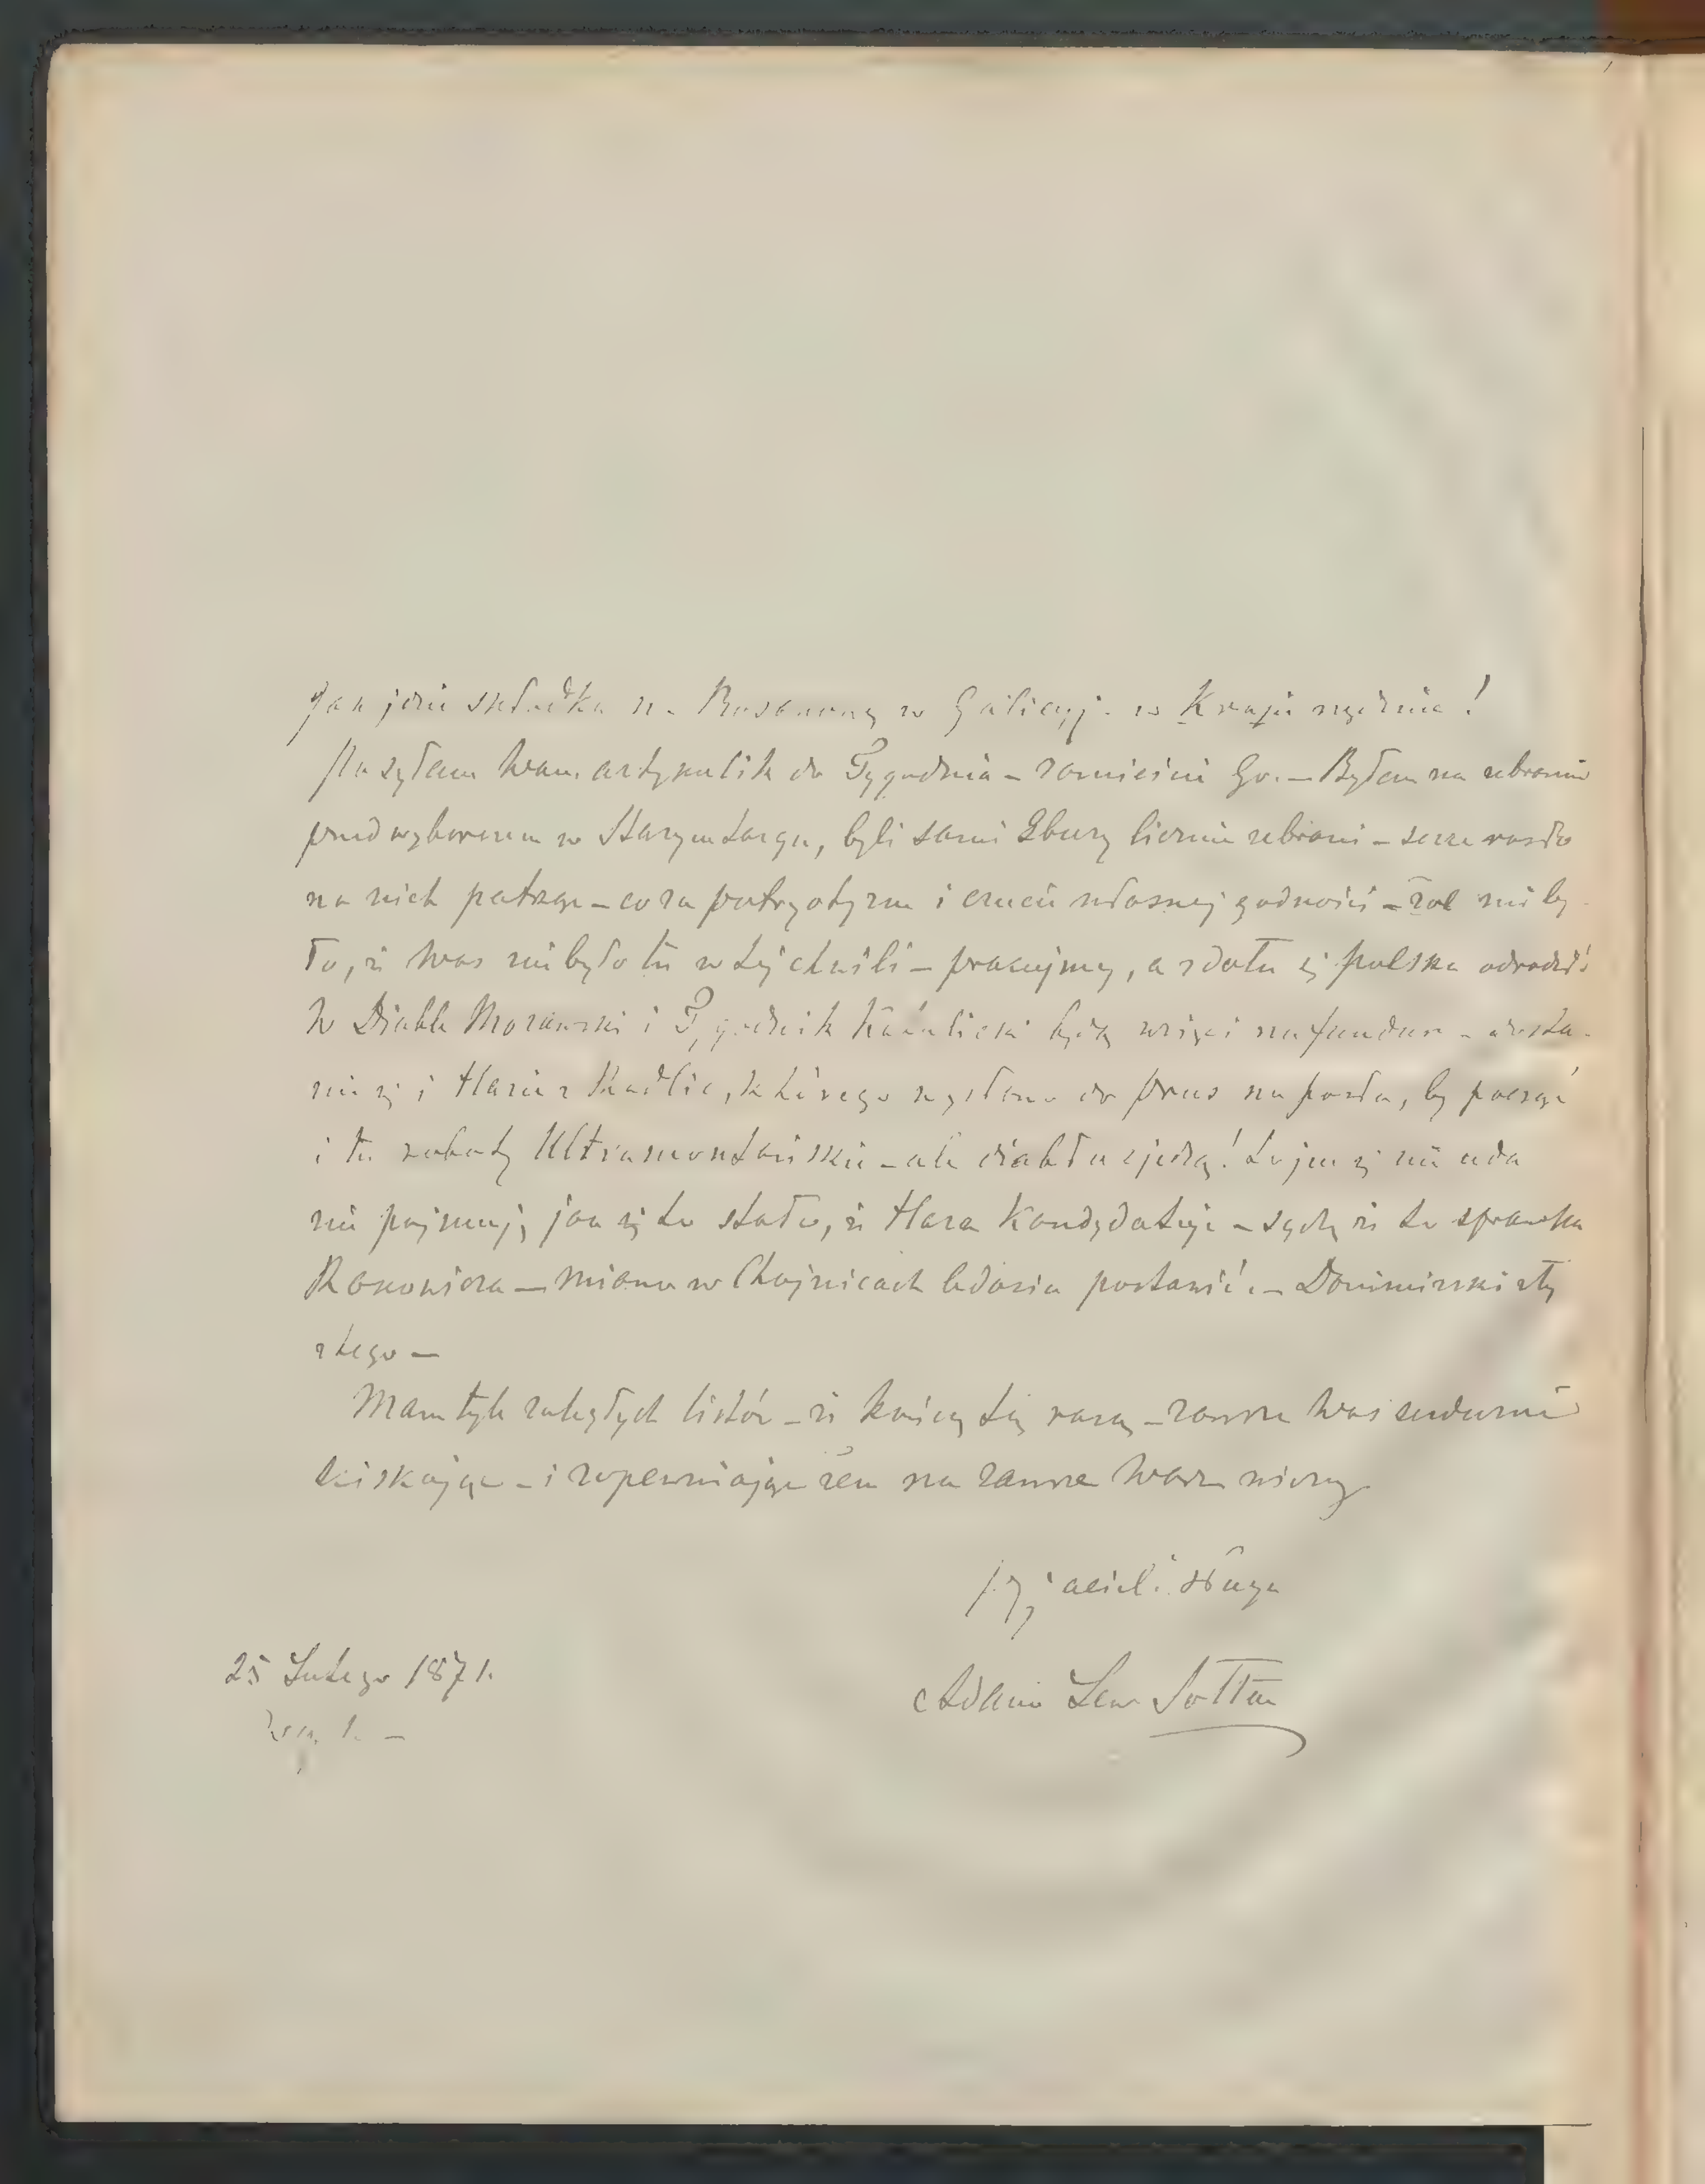 Jak idzie składka na w Galicyj. w Kraju nędznie!
Posyłam Wam artykulik do Tygodnia – zamieście Go. – Byłem na zebraniu
przedwyborczem w Starymtargu, byli sami Gbury licznie zebrani – serce rosło
na nich patrząc – co za patryotyzm i czucie własnej godności – żal mi by
ło, że Was nie było tu w tej chwili – pracujmy, a zdoła się polska odrodzić
W Diable Morawski i Tygodnik Katolicki będą wzięci na fundus – dosta
nie się i Haza z Radlic, którego wysłano do Prus na posła, by począć
i tu roboty Ultramontańskie – ale diabła zjedzą! to jem się nie uda
nie pojmuję jak się to stało, że Haza Kandydatuje – sądzę że to sprawka
– miano w Chojnicach posłanić. – Donimirski zły
z tego –
Mam tyle zaległych listów – że kończę tą razą – zawsze Was serdecznie
ściskając – i zapewniając żem na zawsze Wasz wierny
przyjaciel i sługa
Adam Lew Sołtan
25 Lutego 1871.